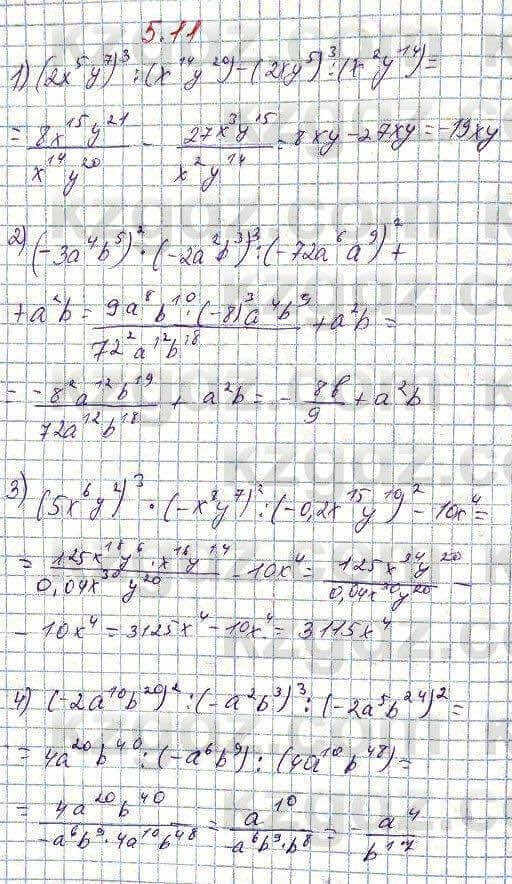 5.11
1) (2x⁵y⁷)³ : (x¹⁴y²⁰) - (2xy⁵)³ : (x²y¹⁴) =
= 8x¹⁵y²¹ / x¹⁴y²⁰ - 27x³y¹⁵ / x²y¹⁴ = 8xy - 27xy = -19xy
2) (-3a⁴b⁵)² · (-2a²b³)³ : (-72a⁶a⁹)² +
+ a²b = 9a⁸b¹⁰ · (-8)³a⁴b⁹ / 72²a¹²b¹⁸ + a²b =
= -8²a¹²b¹⁹ / 72a¹²b¹⁸ + a²b = - 8b / 9 + a²b
3) (5x⁶y²)³ · (-x⁸y⁷)² : (-0,2x¹⁵y¹⁰)² - 10x⁴ =
= 125x¹⁸y⁶ · x¹⁶y¹⁴ / 0,04x³⁰y²⁰ - 10x⁴ = 125x³⁴y²⁰ / 0,04x³⁰y²⁰ -
- 10x⁴ = 3125x⁴ - 10x⁴ = 3115x⁴
4) (-2a¹⁰b²⁰)² : (-a²b³)³ : (-2a⁵b²⁴)² =
= 4a²⁰b⁴⁰ : (-a⁶b⁹) : (4a¹⁰b⁴⁸) =
= 4a²⁰b⁴⁰ / -a⁶b⁹ · 4a¹⁰b⁴⁸ = a¹⁰ / a⁶b⁹ · b⁸ = - a⁴ / b¹⁷